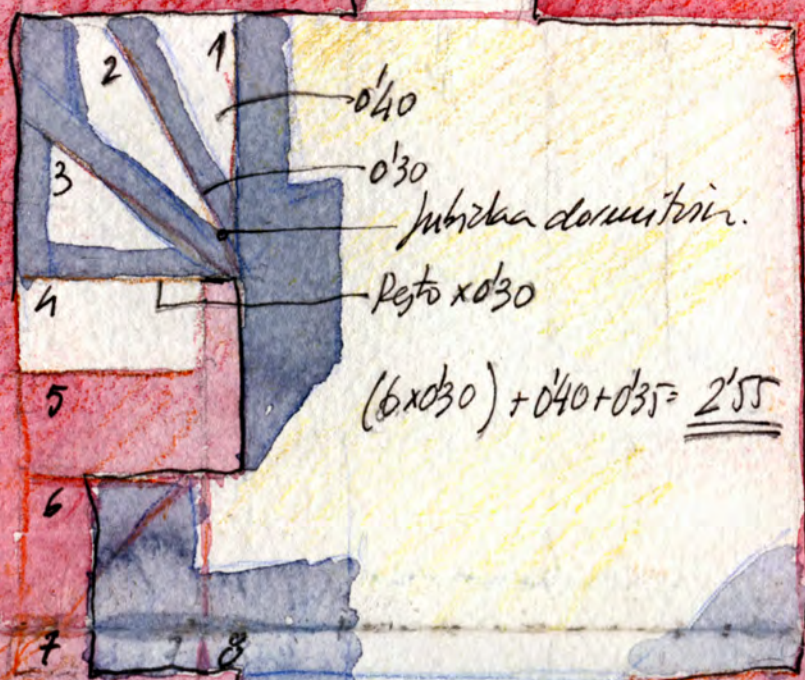 2 1
0'40
0'30
3
Subida a dormitorio.
4
Resto x0'30
5
(6x0'30) + 0'40+0'35= 2'55
6
7 8